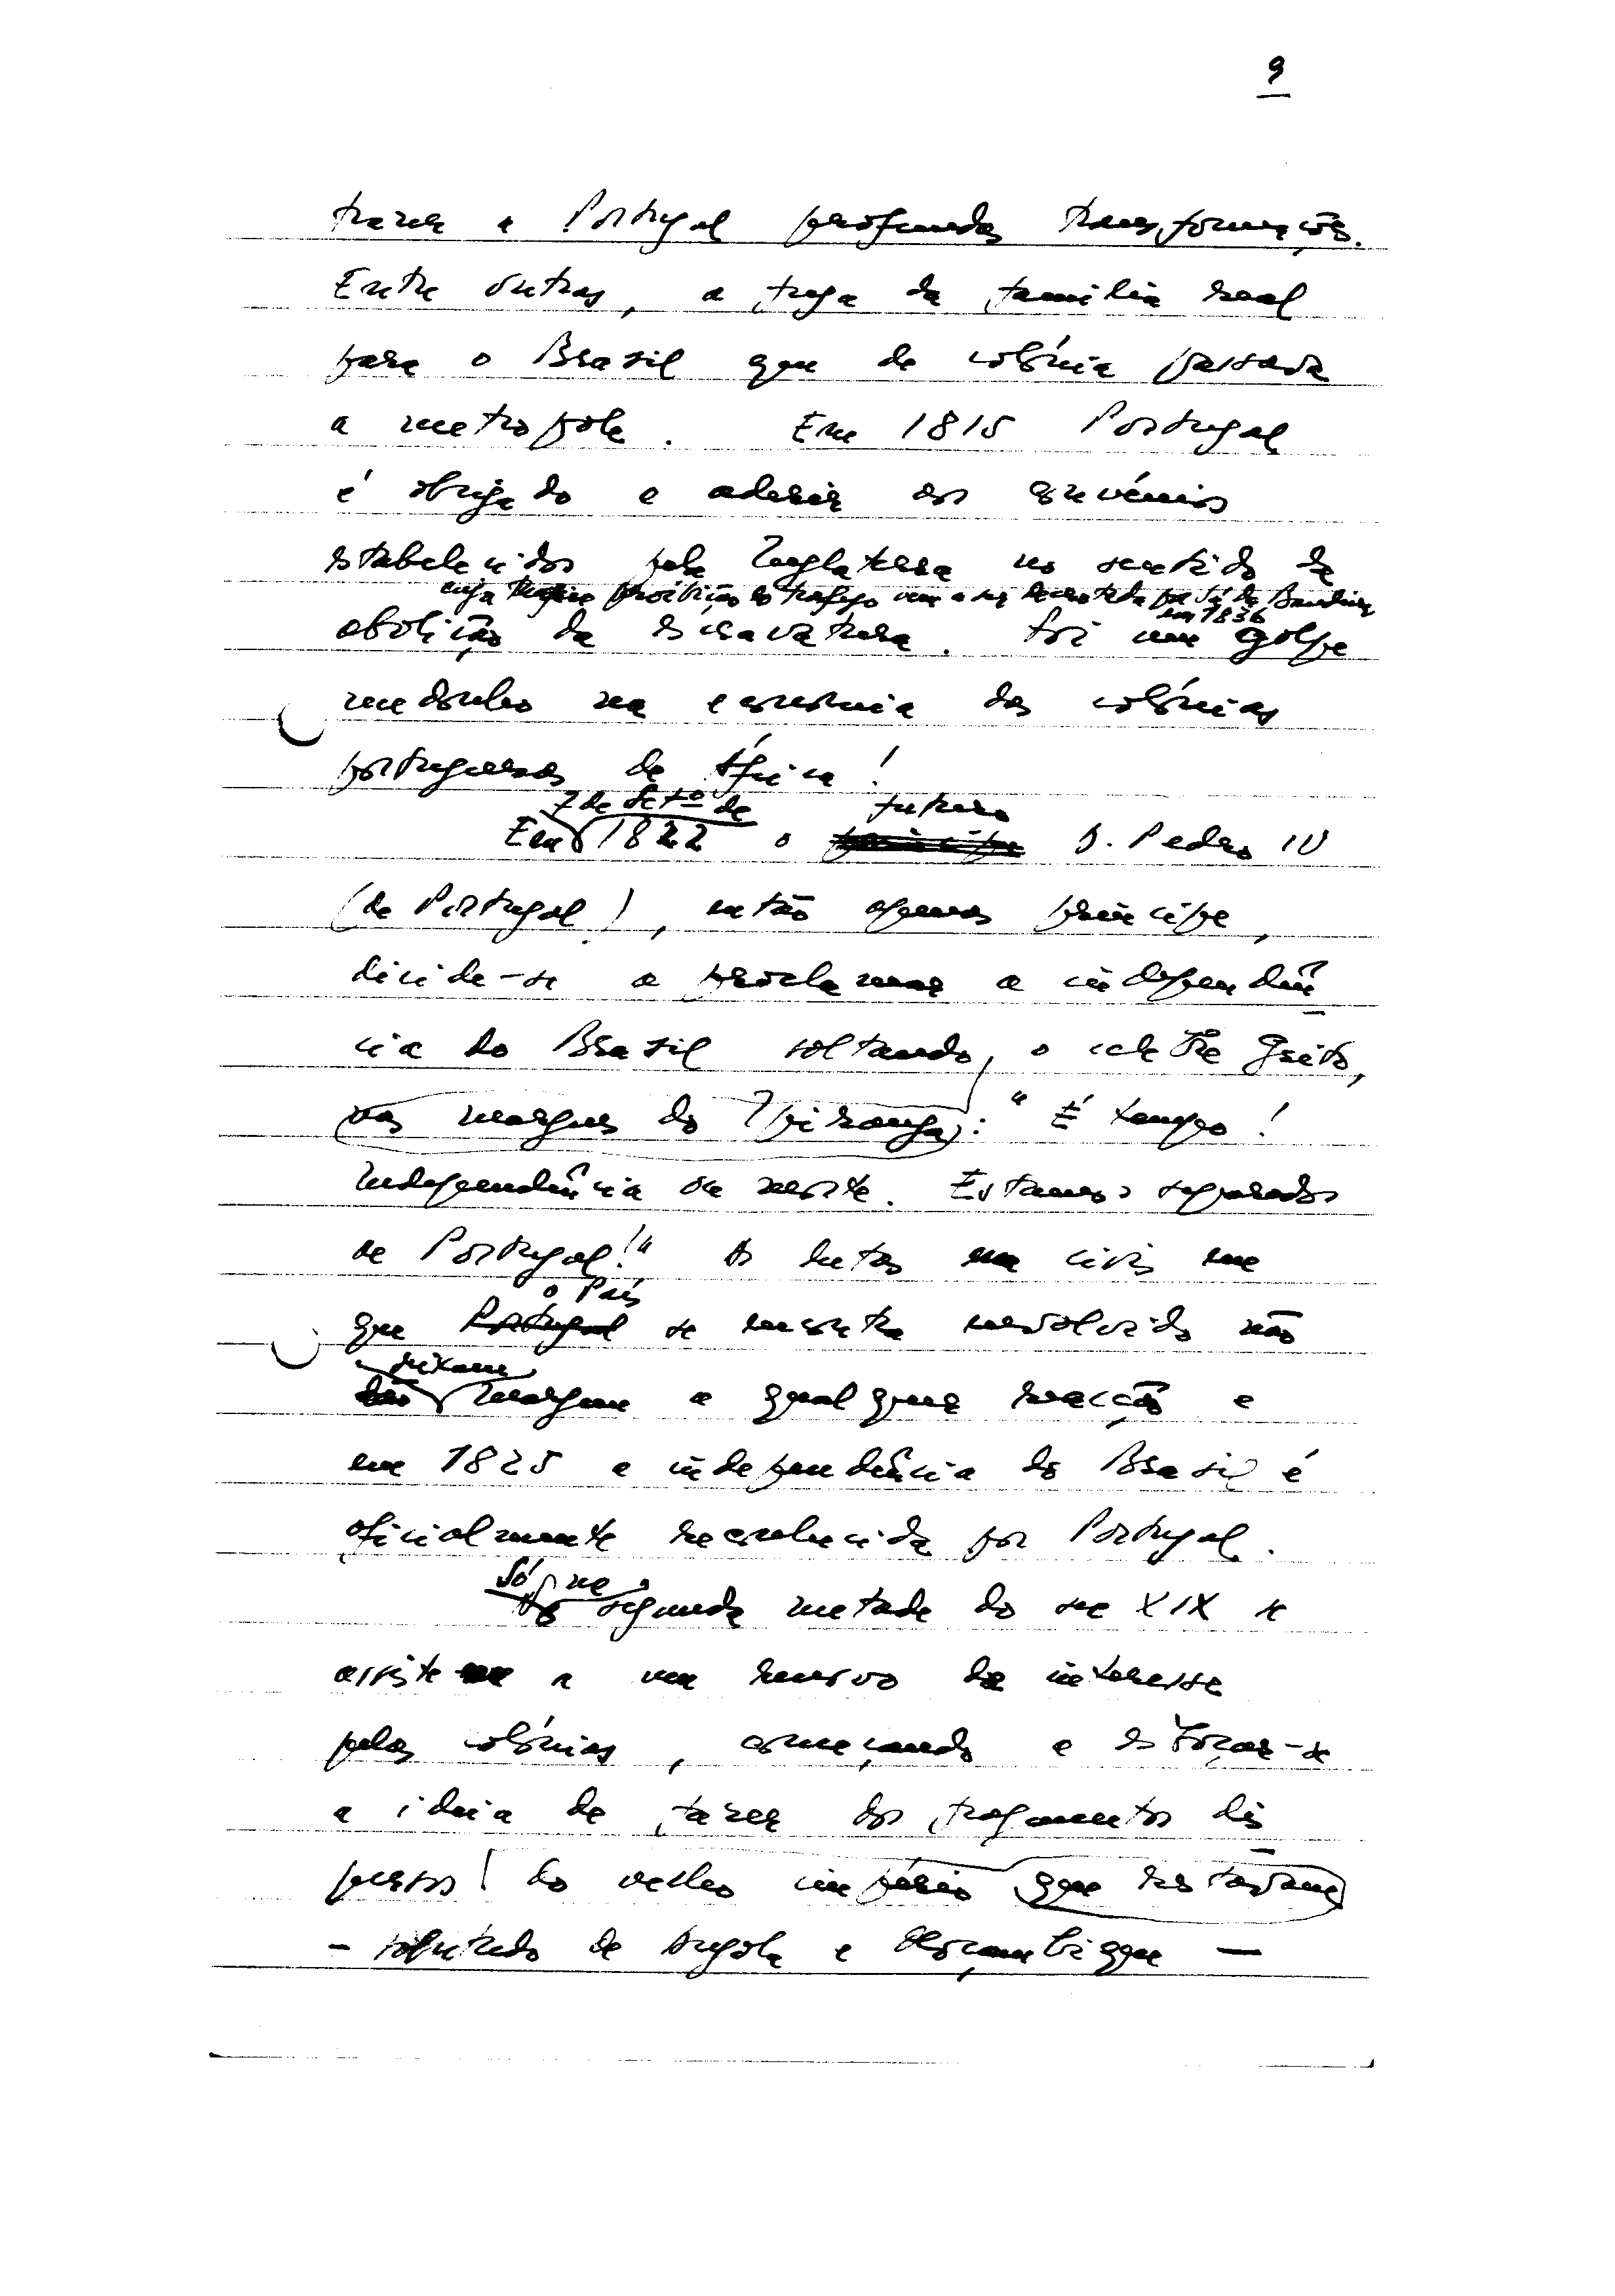 9
trazer a Portugal profundas transformações.
Entre outras, a fuga da família real
para o Brasil que de colónia passava
a metropole. Em 1815 Portugal
é obrigado a aderir aos convénios
estabelecidos pela Inglaterra no sentido da
cuja proibição do trafego vem a ser decretada por Sá da Bandeira
em 1836
abolição da escravatura. Foi um golpe
medonho na economia das colónias
portuguesas de África!
7 de Setº de futuro
Em 1822 o príncipe D. Pedro IV
(de Portugal), então apenas príncipe,
decide-se a proclamar a independên
cia do Brasil soltando, o celebre grito,
nas margens do Ipiranga: "É tempo!
Independência ou morte. Estamos separados
de Portugal!" As lutas civis em
o País
que Portugal se encontra envolvido não
deixam
dão margem a qualquer reacção e
em 1825 a independência do Brasil é
oficialmente reconhecida por Portugal.
Só na
Na segunda metade do sec XIX se
assiste a um renovo de interesse
pelas colónias, começando a esforçar-se
a ideia de fazer dos fragmentos dis
persos do velho império que restavam
- sobretudo de Angola e Moçambique -